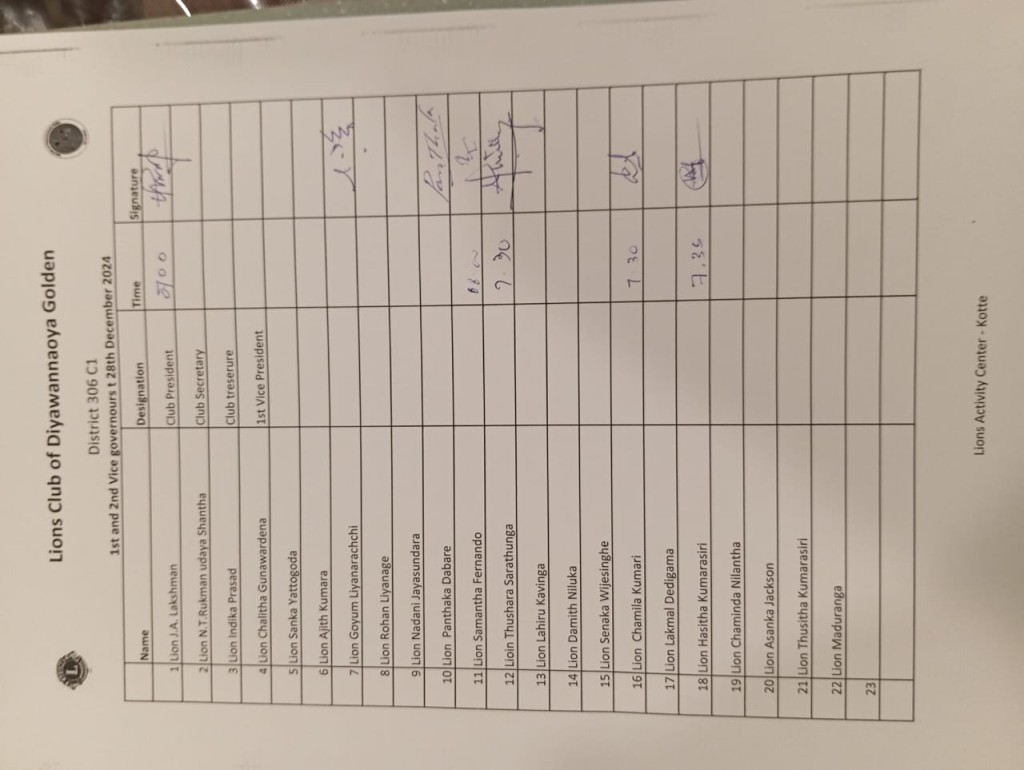 Lions Club of Diyawannaoya Golden
District 306 C1
1st and 2nd Vice governours t 28th December 2024
Name Designation Time Signature
1 Lion J.A. Lakshman Club President
2 Lion N.T.Rukman udaya Shantha Club Secretary
3 Lion Indika Prasad Club treserure
4 Lion Chalitha Gunawardena 1st Vice President
5 Lion Sanka Yattogoda
6 Lion Ajith Kumara
7 Lion Goyum Liyanarachchi
8 Lion Rohan Liyanage
9 Lion Nadani Jayasundara
10 Lion Panthaka Dabare
11 Lion Samantha Fernando
12 Lioin Thushara Sarathunga 7.30
13 Lion Lahiru Kavinga
14 Lion Damith Niluka
15 Lion Senaka Wijesinghe
16 Lion Chamila Kumari 7.30
17 Lion Lakmal Dedigama
18 Lion Hasitha Kumarasiri 7.35
19 Lion Chaminda Nilantha
20 Lion Asanka Jackson
21 Lion Thusitha Kumarasiri
22 Lion Maduranga
23
Lions Activity Center - Kotte